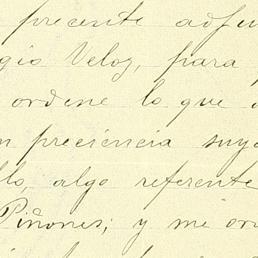 precente adju
gio Veloz, para
ordene lo que
n preciencia suya
llo, algo referente
Piñones; y me or